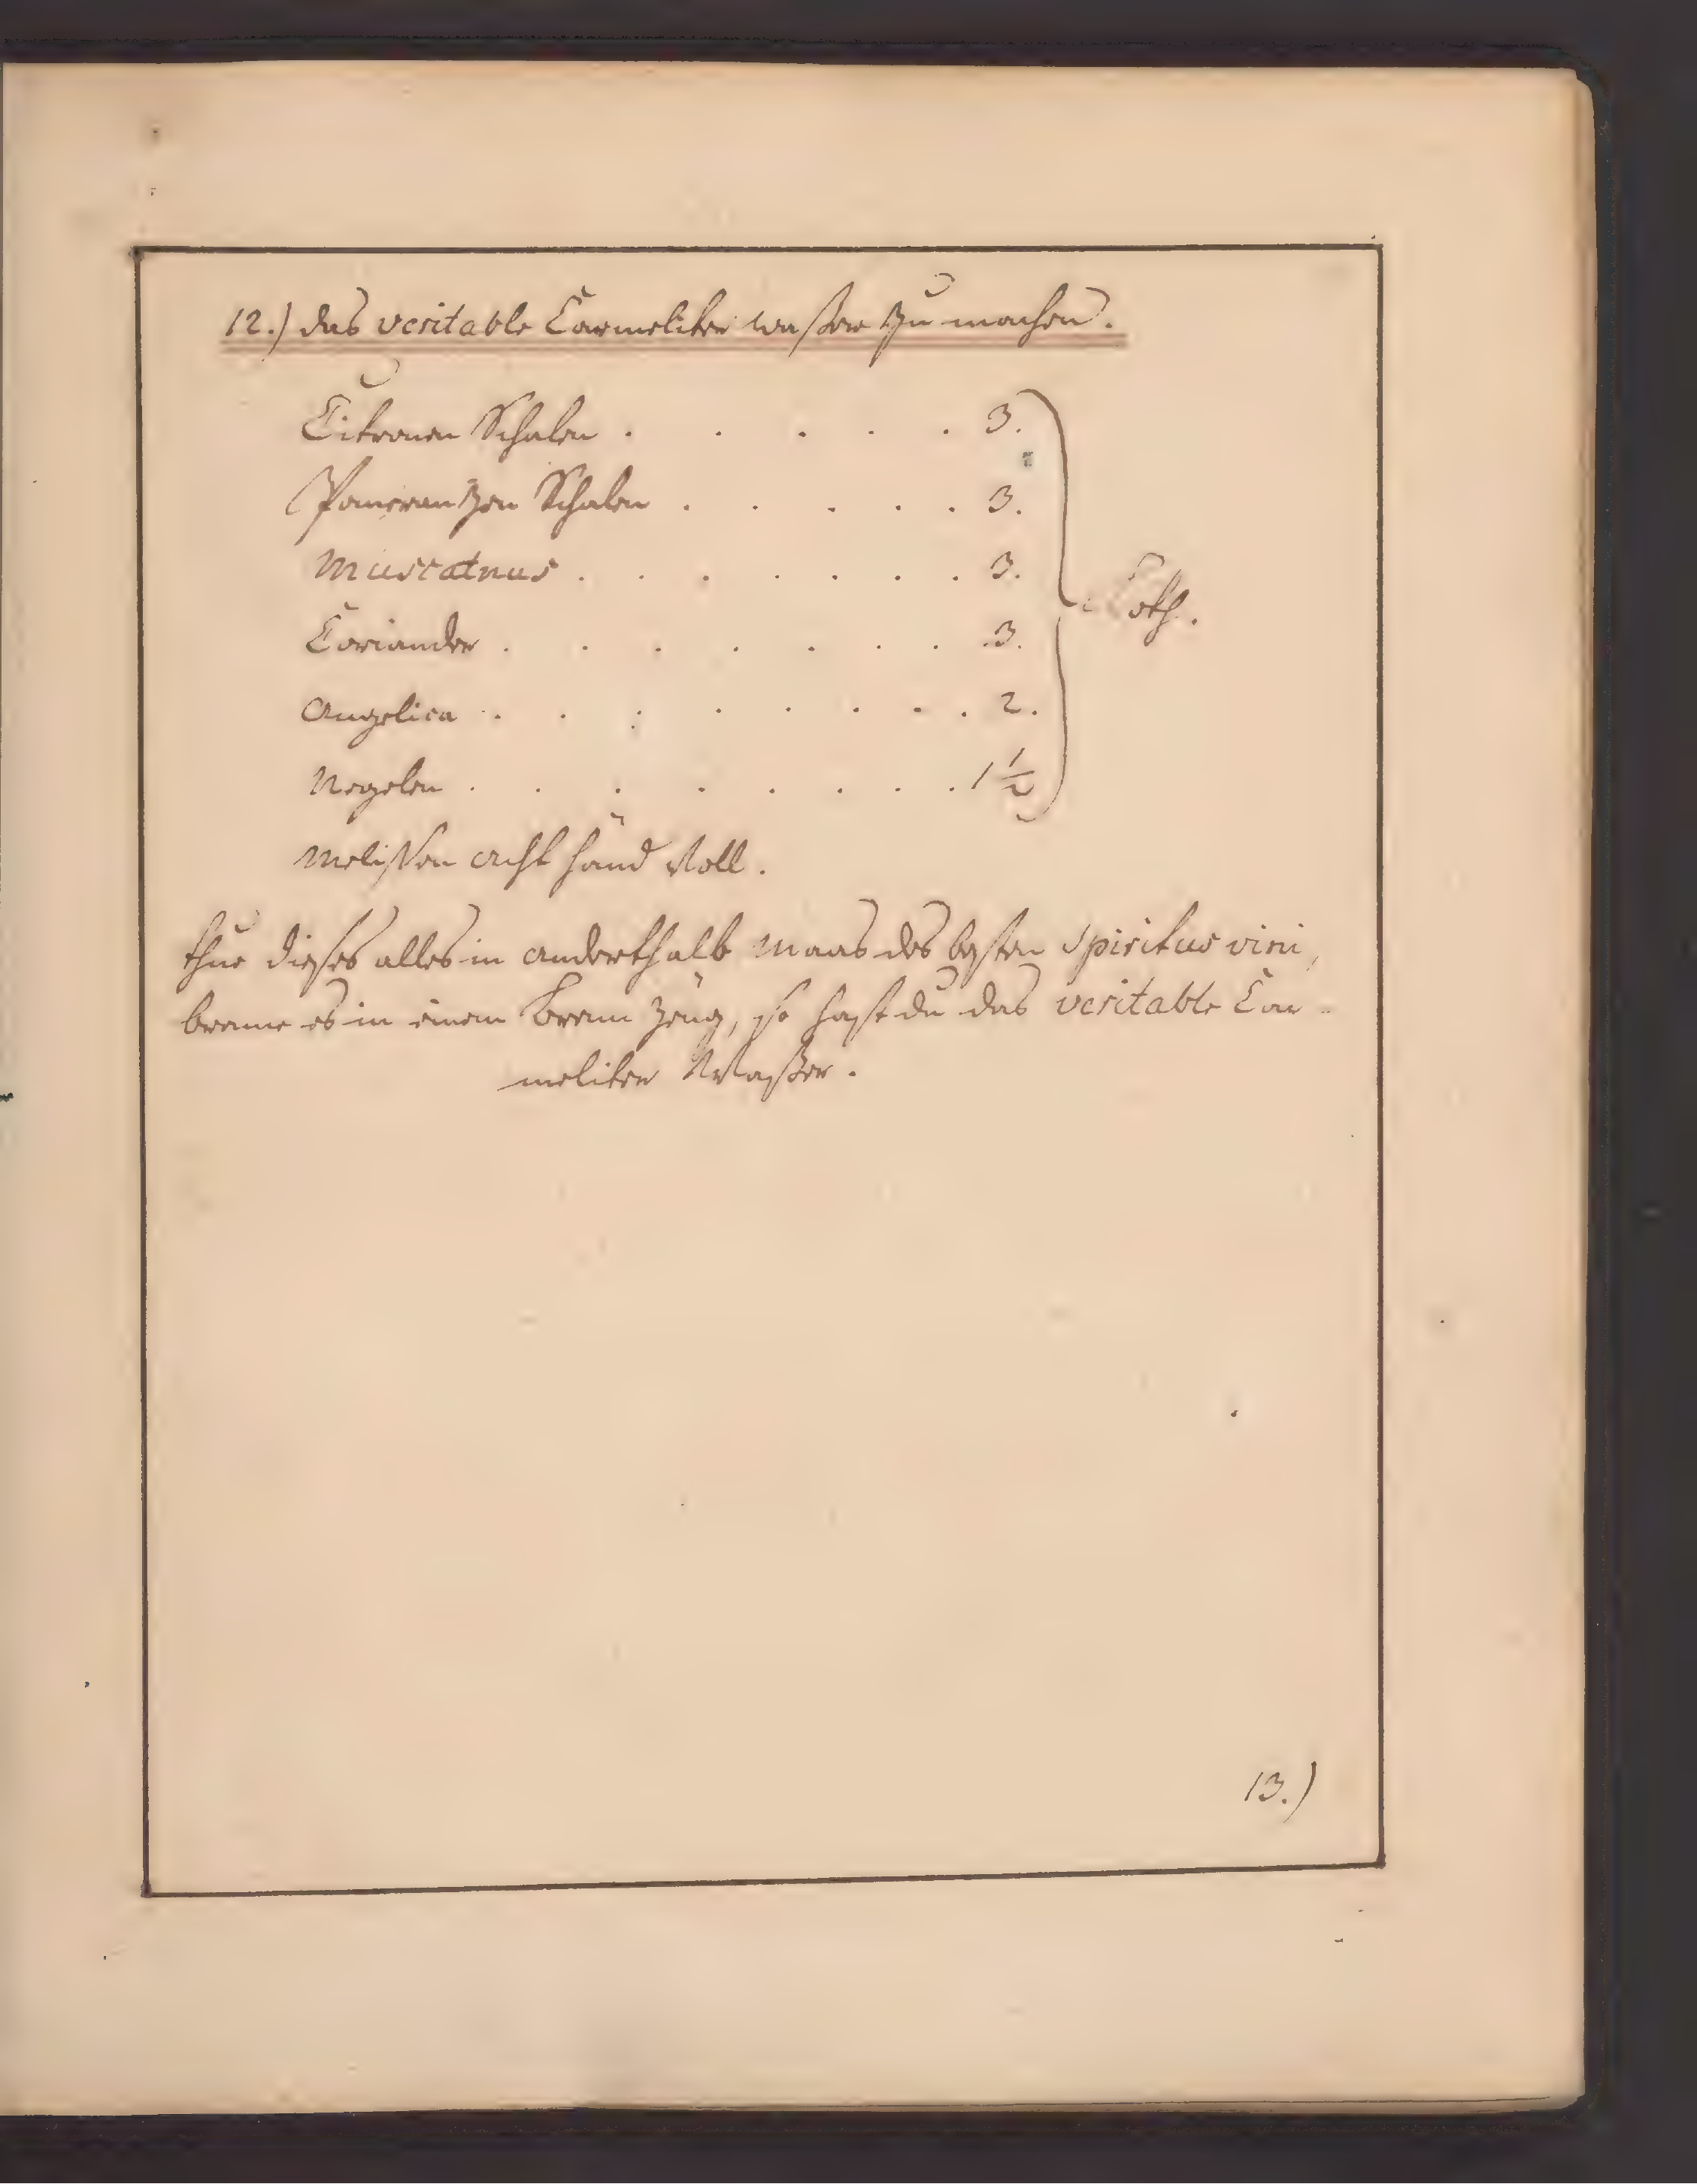 12.) das veritable Carmeliter waßer zu machen.
Citronen Schalen . . . . . 3.
Pomerantzen Schalen . . . . . 3.
Muscatnus . . . . . . . 3.
Coriander . . . . . . . 3.
Loth.
Angelica . . . . . . . . 2.
Negelen . . . . . . . . 1 1/2
Melißen acht händ voll.
thue dießes alles in anderthalb Maas des besten Spiritus vini,
brenne es in einem Brenn Zeug, so hast du das veritable Car-
meliter Waßer.
13.)